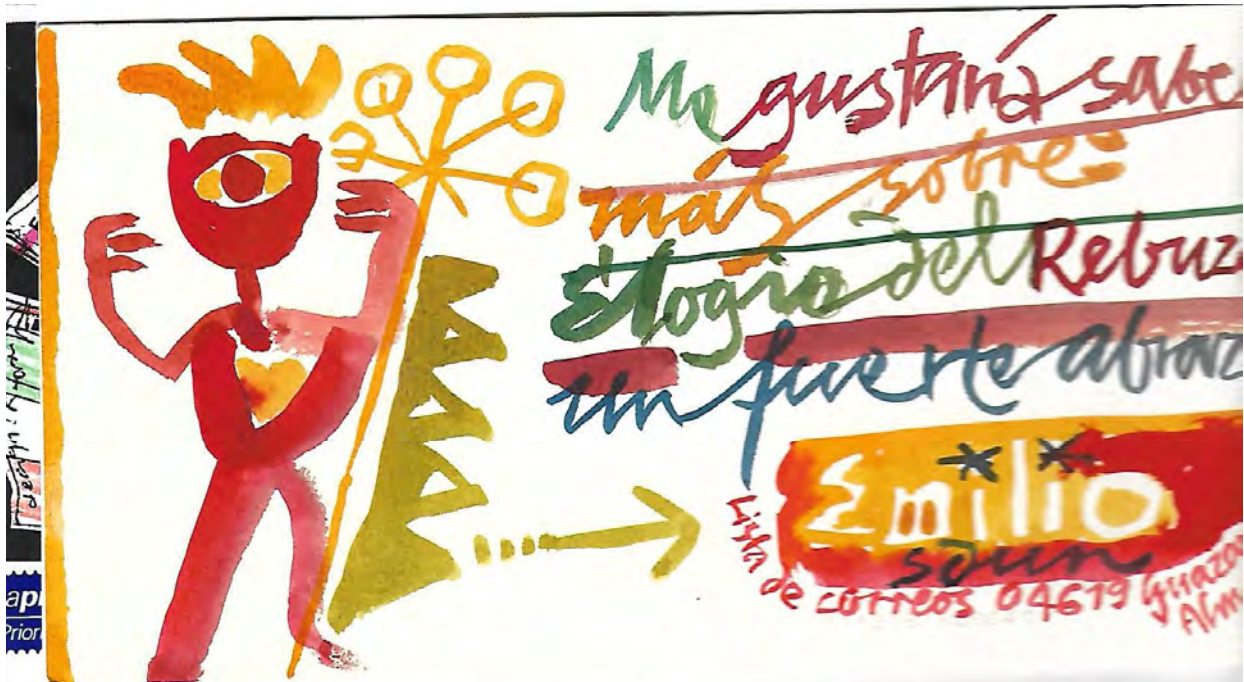 Me gustaría sabe
más sobre:
Elogio del Rebuz
un fuerte abraz
Emilio
sdun
Lista de correos 04619 Guaza
Alm
apl
Prior